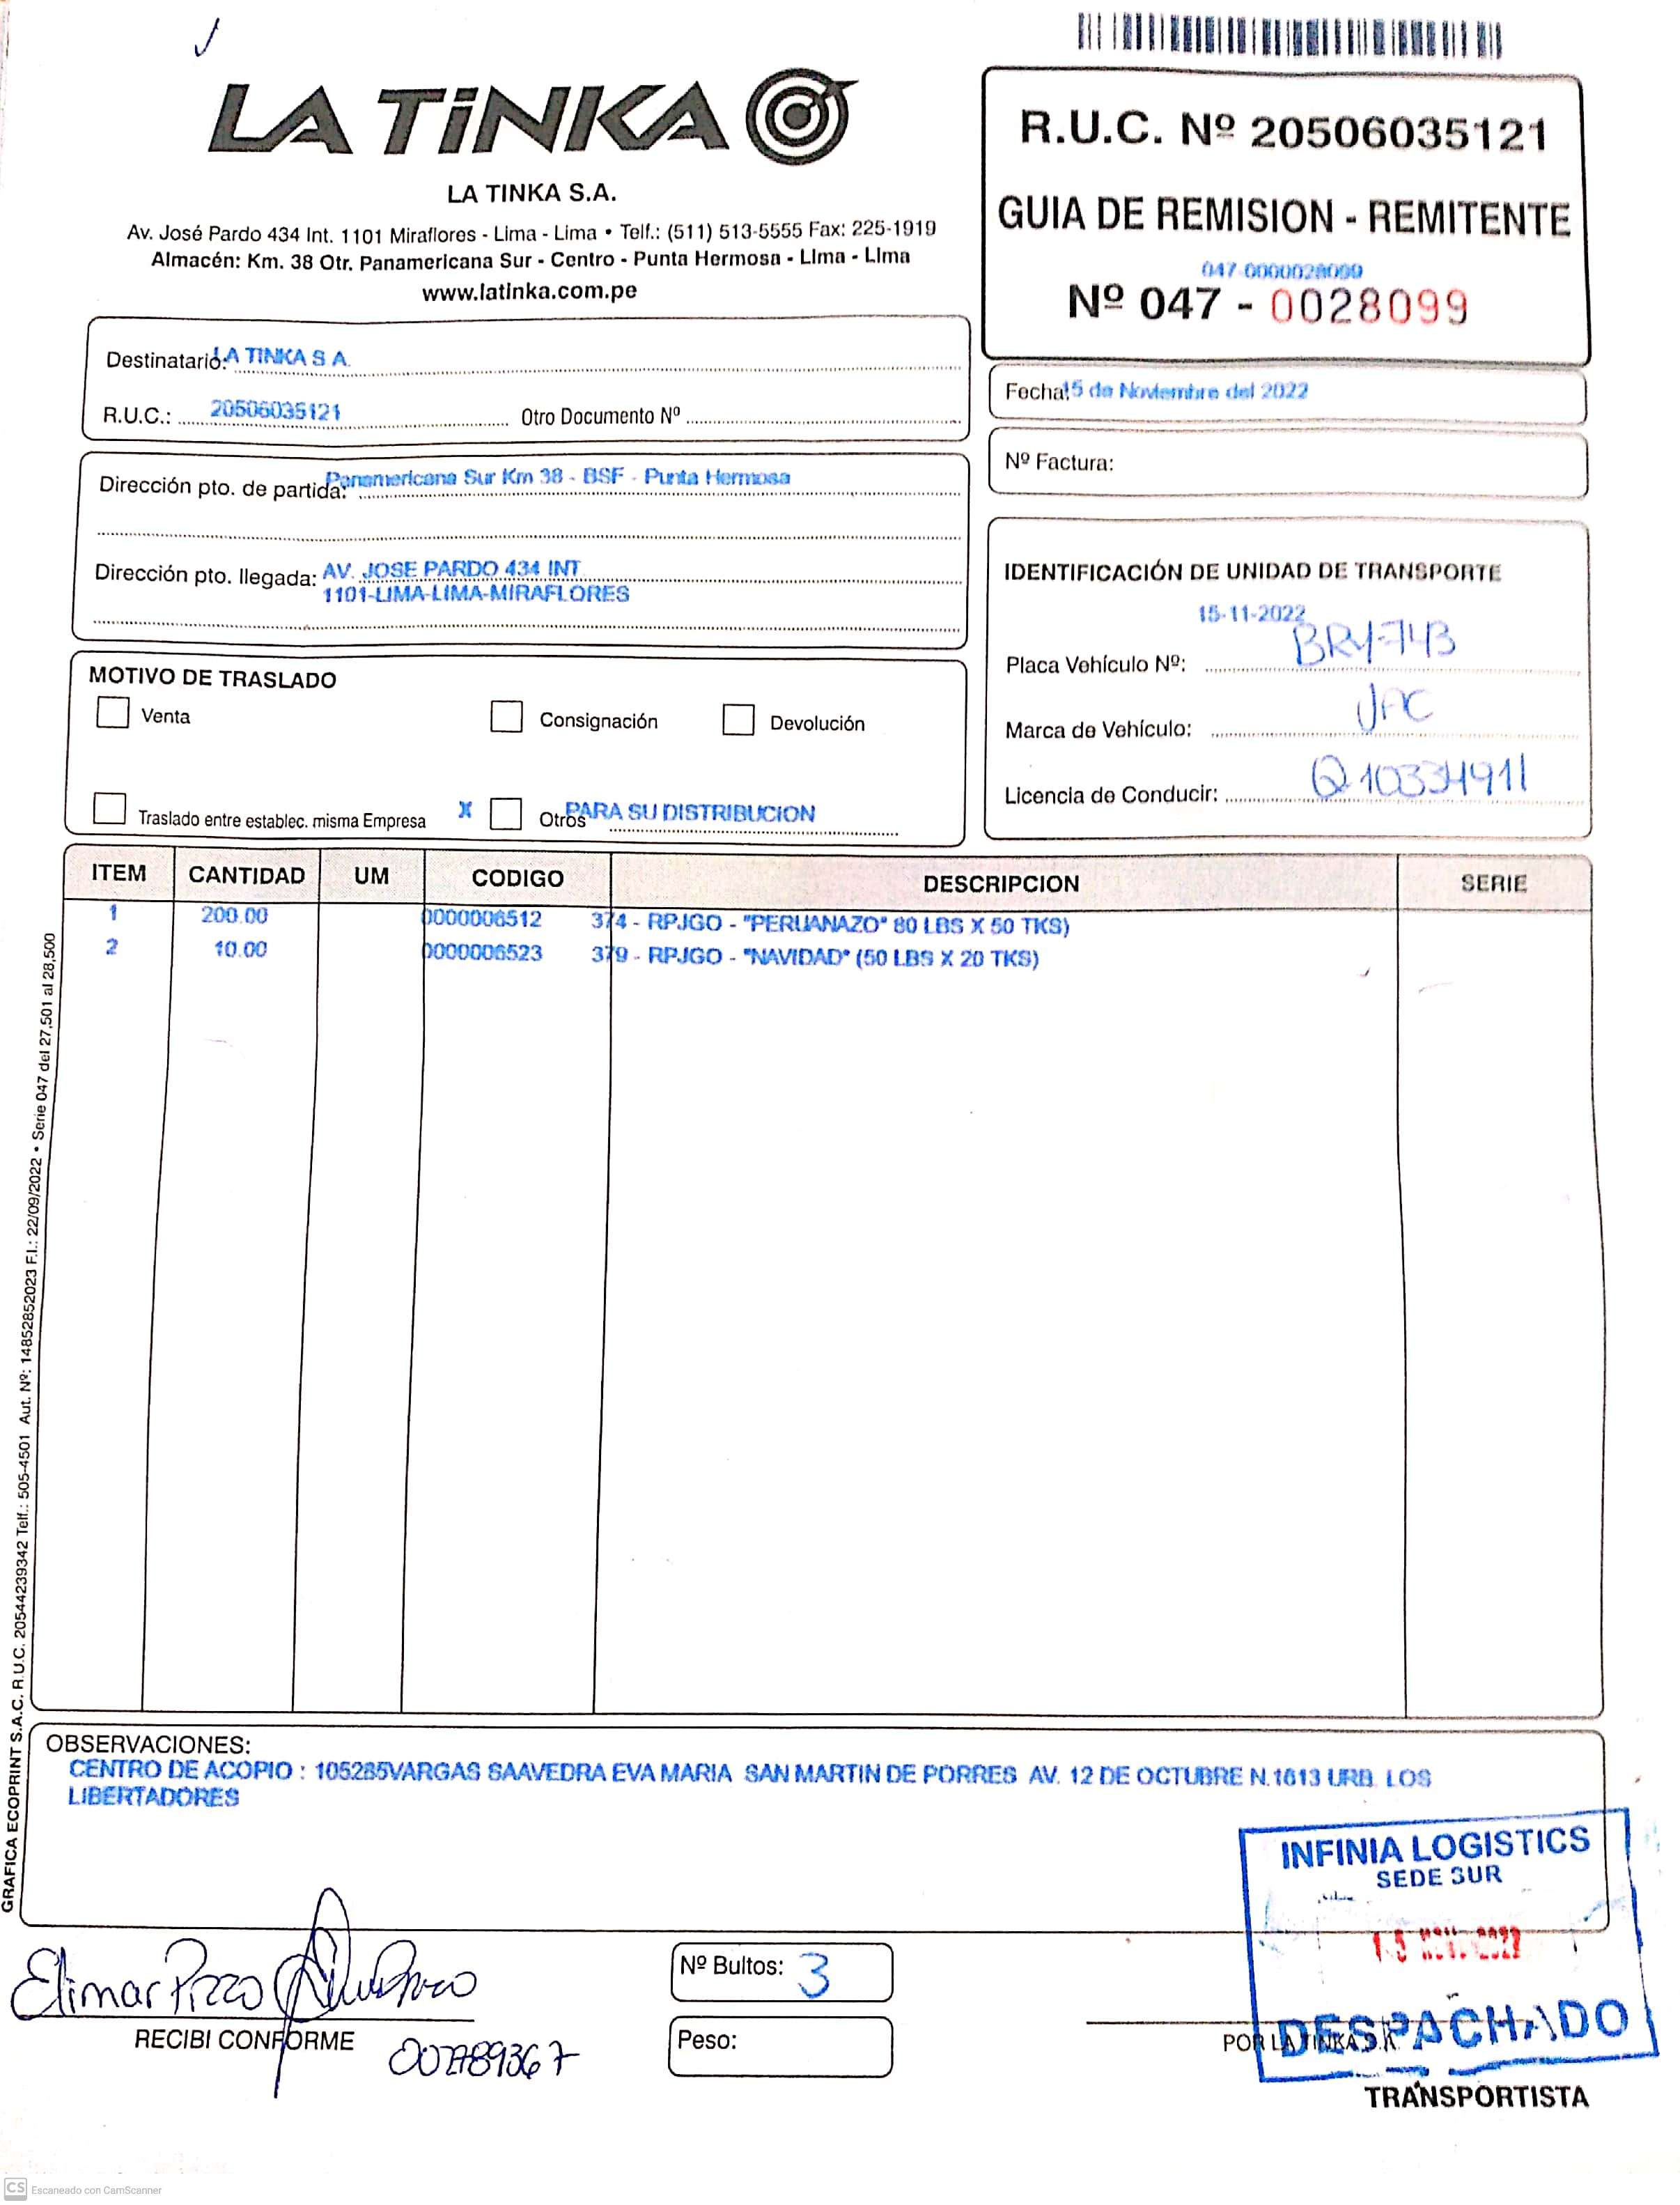 LA TiNKA
LA TINKA S.A.
Av. José Pardo 434 Int. 1101 Miraflores - Lima - Lima • Telf.: (511) 513-5555 Fax: 225-1919
Almacén: Km. 38 Otr. Panamericana Sur - Centro - Punta Hermosa - LIma - LIma
www.latinka.com.pe
R.U.C. Nº 20506035121
GUIA DE REMISION - REMITENTE
047-0000028099
Nº 047 - 0028099
Destinatario: LA TINKA S A.
R.U.C.: 20506035121 Otro Documento Nº
Fecha: 15 de Noviembre del 2022
Nº Factura:
Dirección pto. de partida: Panamericana Sur Km 38 - BSF - Punta Hermosa
Dirección pto. llegada: AV. JOSE PARDO 434 INT
1101-LIMA-LIMA-MIRAFLORES
IDENTIFICACIÓN DE UNIDAD DE TRANSPORTE
15-11-2022
Placa Vehículo Nº: BRY-743
Marca de Vehículo: JAC
Licencia de Conducir: Q10334911
MOTIVO DE TRASLADO
Venta Consignación Devolución
Traslado entre establec. misma Empresa X Otros PARA SU DISTRIBUCION
ITEM CANTIDAD UM CODIGO DESCRIPCION SERIE
1 200.00 0000006512 374 - RPJGO - "PERUANAZO" 80 LBS X 50 TKS)
2 10.00 0000006523 379 - RPJGO - "NAVIDAD" (50 LBS X 20 TKS)
GRAFICA ECOPRINT S.A.C. R.U.C. 20544239342 Telf.: 505-4501 Aut. Nº: 14852852023 F.I.: 22/09/2022 • Serie 047 del 27,501 al 28,500
OBSERVACIONES:
CENTRO DE ACOPIO : 105285VARGAS SAAVEDRA EVA MARIA SAN MARTIN DE PORRES AV. 12 DE OCTUBRE N.1613 URB. LOS
LIBERTADORES
INFINIA LOGISTICS
SEDE SUR
15 NOV. 2022
DESPACHADO
Elimar Pizzo
RECIBI CONFORME
002789367
Nº Bultos: 3
Peso:
POR LA TINKA S.A.
TRANSPORTISTA
CS Escaneado con CamScanner